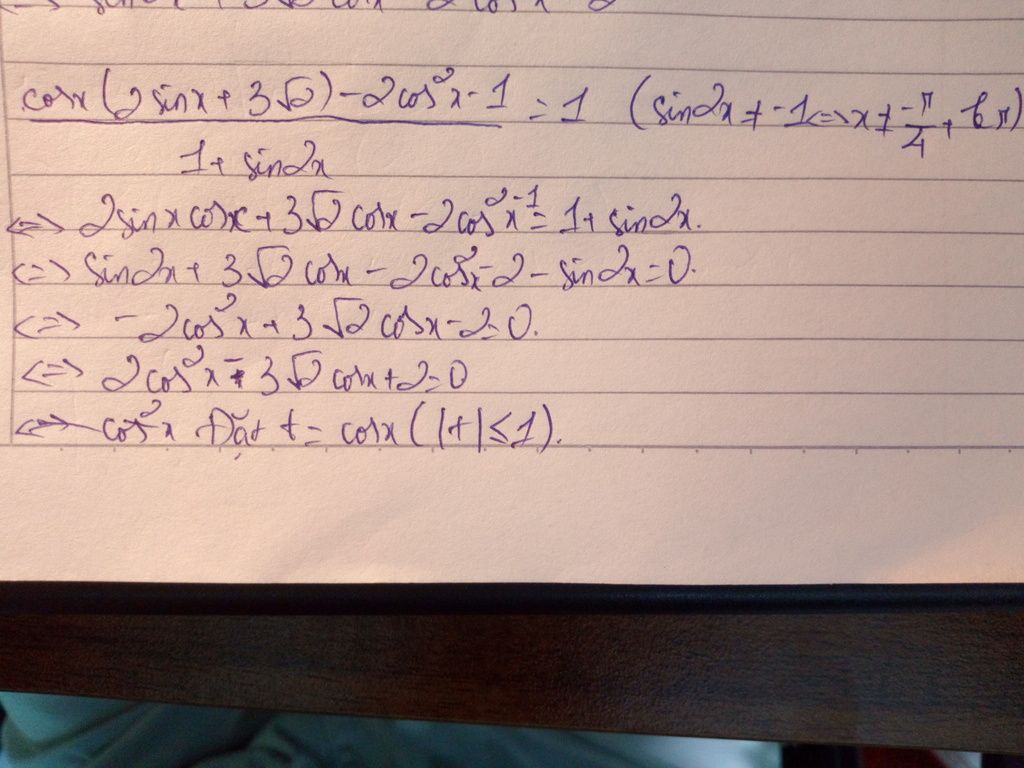 cosx(2sinx+3√2)-2cos²x-1 / 1+sin2x = 1 (sin2x≠-1<=>x≠-π/4+kπ)
<=> 2sinxcosx+3√2cosx-2cos²x-1=1+sin2x.
<=> sin2x+3√2cosx-2cos²x-2-sin2x=0.
<=> -2cos²x+3√2cosx-2=0.
<=> 2cos²x-3√2cosx+2=0
<=> cos²x Đặt t=cosx(|t|≤1).